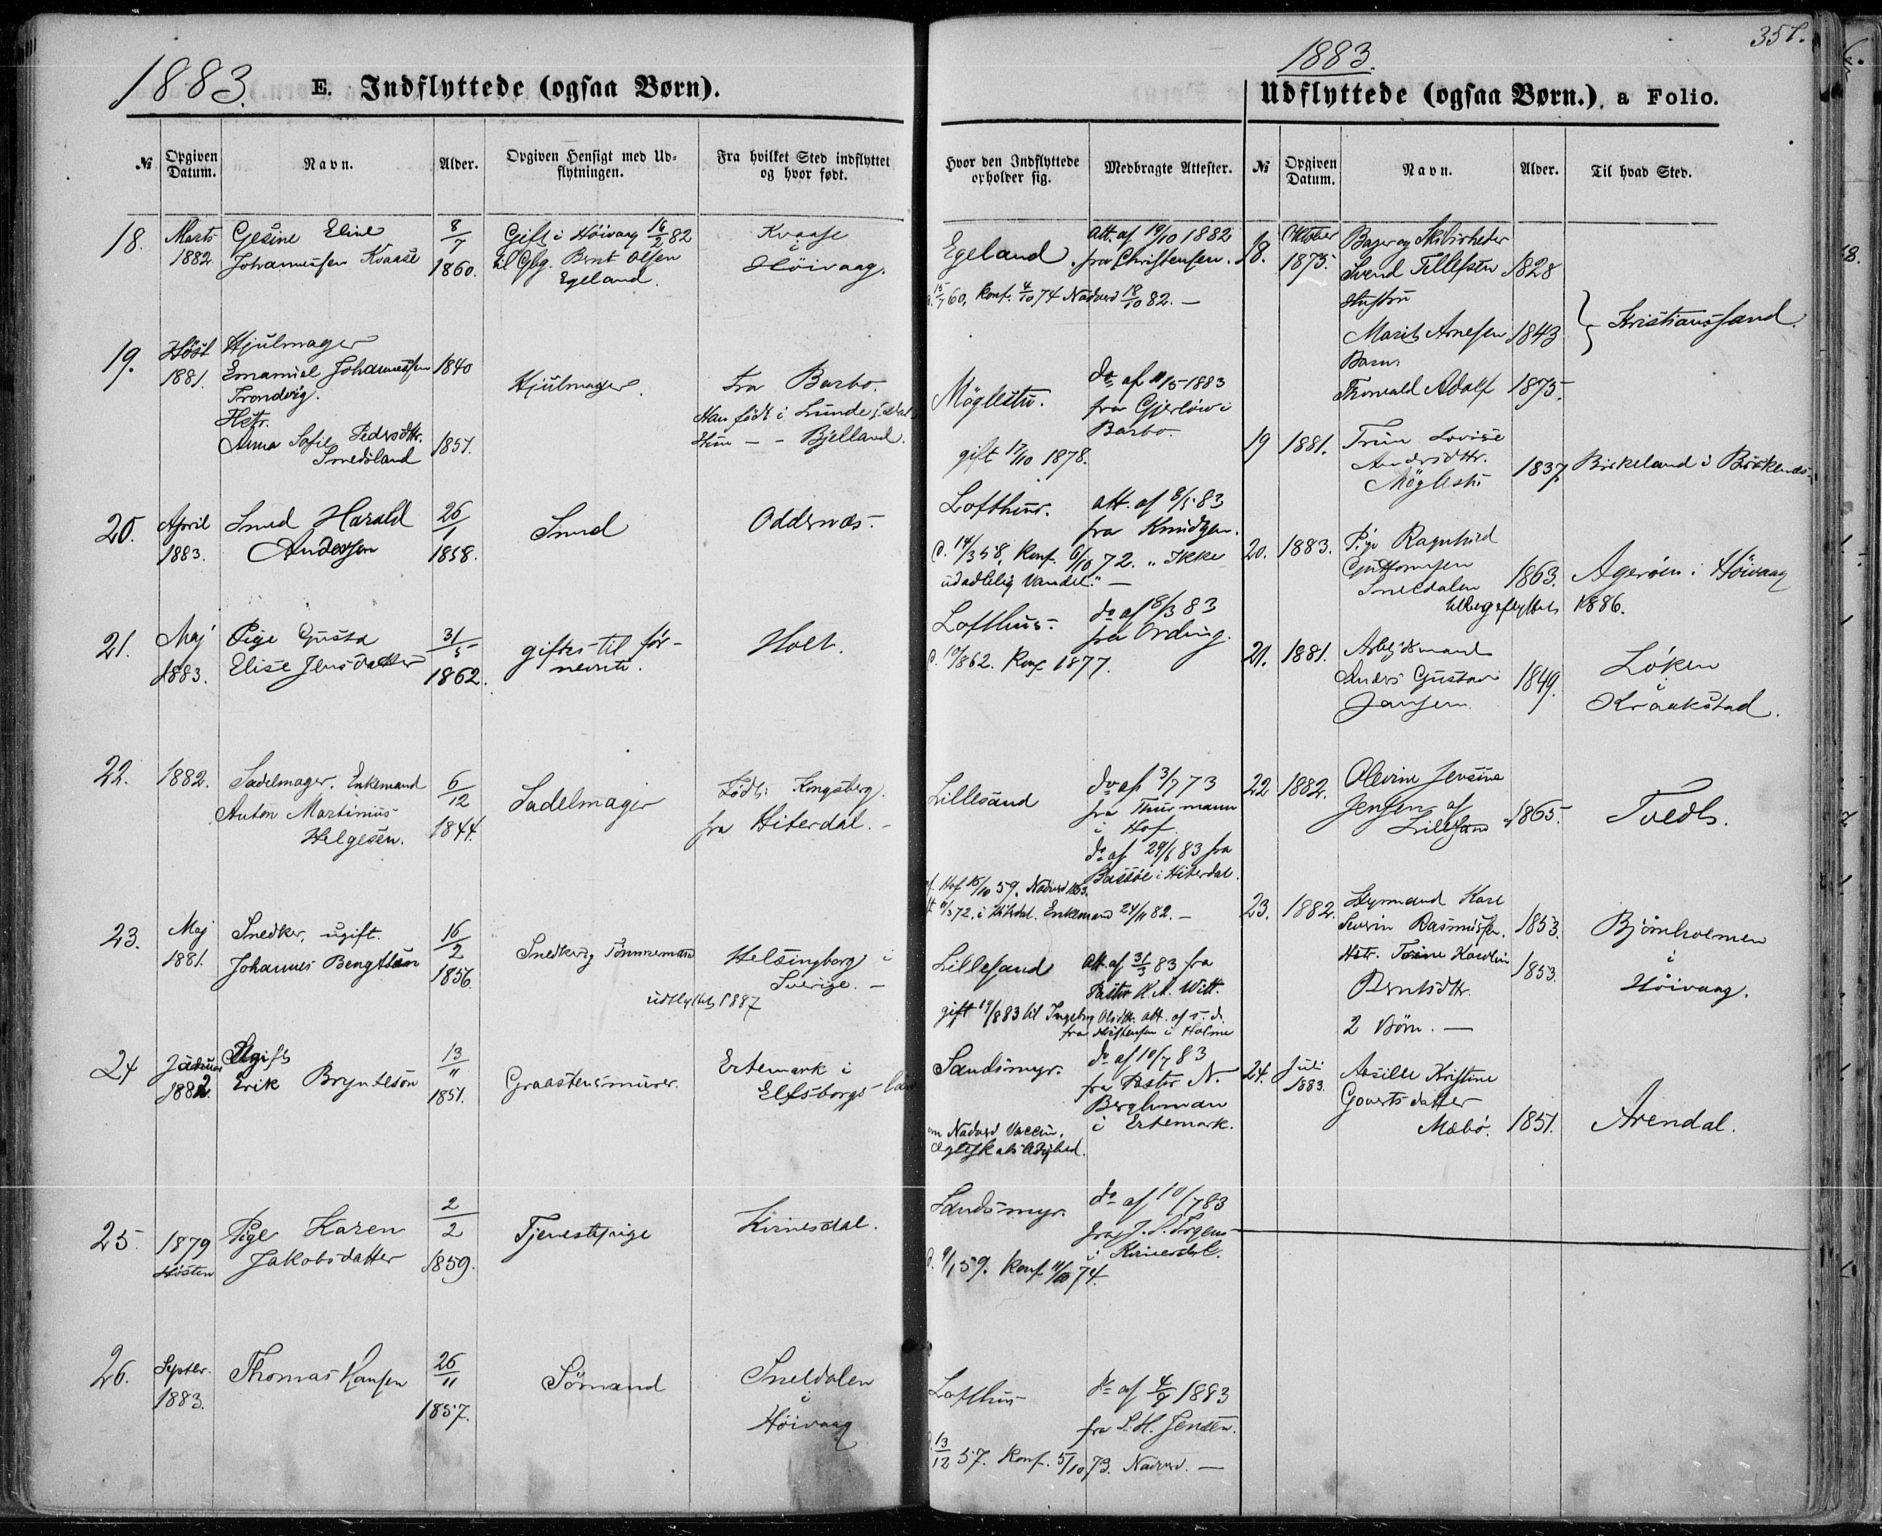 1883. E. Indflyttede (ogsaa Børn).
№ Opgiven Datum. Navn. Alder. Opgiven Hensigt med Udflytningen. Fra hvilket Sted indflyttet og hvor født.
18. Marts 1882. Gesine Eline Johannessen Kvaase 8/7 1860. Gift i Höivaag 16/2 82 til Gbg. Brnt Olsen Egeland. Kvaase i Höivaag.
19. Höst 1881. Hjulmager Emanuel Johannessen Trondvig. 1840 Hjulmager. fra Barbo.
Hstr. Anna Sofie Pedersdtr. Smedsland 1851. Han født i Lunde
Hun — - Bjelland.
20. April 1883. Smed Harald Andersen 26/1 1858. Smed Oddernæs.
21. Maj 1883. Pige Gusta Elise Jensdatter 31/5 1862. giftes til för-nevnte. Holt.
22. 1882. Sadelmager. Enkemand Anton Martinius Helgesen. 6/12 1844. Sadelmager Født: Kongsberg. fra Hiterdal. —
23. Maj 1881. Snedker, ugift. Johannes Bengtson 16/2 1856. Snedker Helsingborg i Sverige. —
udflyttet 1887
24 Januar 1882. Ugift Erik Brynteson 13/11 1851. Graastensmurer. Ertemark i Elfsborgs Län
25. 1879 Høsten Pige Karen Jakobsdatter 2/2 1859. Tjenestepige Kvinesdal.
26. Septbr. 1883. Thomas Hansen 26/11 1857. Sömand Sneldalen i Höivaag
351.
1883.
Udflyttede (ogsaa Børn.), a Folio.
Hvor den Indflyttede opholder sig. Medbragte Attester.
Egeland. Att. af 19/10 1882 fra Christensen.
15/7 60. Konf. 4/10 74 Nadverd 18/10 82. —
Möglestu. do af 11/5 1883 fra Gjerlöw i Barbo.
gift 17/10 1878.
Lofthus. Att. af 8/5 83 fra Knudtzen.
14/3 58, Konf. 6/10 72. "Ikke udadlelig Vandel." —
Lofthus. do af 8/3 83 fra Ording.
10/8 62. Konf. 1877.
Lillesand do af 3/7 73 fra Thurmann i Hof.
do af 29/6 83 fra Bassöe i Hiterdal.
Hof 16/10 59. Nadverd 1863. i Hitrdal. Enkemand 24/11 82. —
Lillesand Att. af 31/3 83 fra Pastor K.A. Witt.
gift 19/8 83 til Ingeborg Olsdtr. att. af s. d. fra Christensen i Holme
Sandsmyr. do af 10/7 83 fra Pastor N. Berghman i Ertemark.
om Nadverd Vaccin. Ægteskabsledighed.
Sandsmyr. do af 10/7 83 fra J. S. i Kvinesdal.
9/1 59. Konf. 11/10 74.
Lofthus do af 4/9 1883 fra S. H. Jensen.
13/12 57. Konf. 5/10 73. Nadverd. —
№ Opgiven Datum. Navn. Alder. Til hvad Sted.
18. Oktober 1875. Bager og Skibsreder Svend Tellefsen 1828
Hustru Marit Arnesen 1843
Barn Thorvald Adolf 1875. } Kristianssand.
19 1881. Trine Lovise Andersdtr. Möglestu 1837 Birkeland i Birkenæs
20. 1883. Pige Ragnhild Guttormsen Sneldalen 1863. Ageröen i Höivaag
tilbageflyttet 1886.
21. 1881. Arbejdsmand Anders Gustav Jansen 1849. Löken i Kraakstad.
22 1882. Olevine Jensine Jensen af Lillesand 1865. Tvedt.
23. 1882. Styrmand Karl Severin Rasmussen. 1853. Bjørnholmen i Höivaag.
Hstr. Tomine Karoline Berntsdtr. 1853.
2 Börn. —
24. Juli 1883. Assille Kristine Govertsdatter Mæbö. 1851. Arendal.